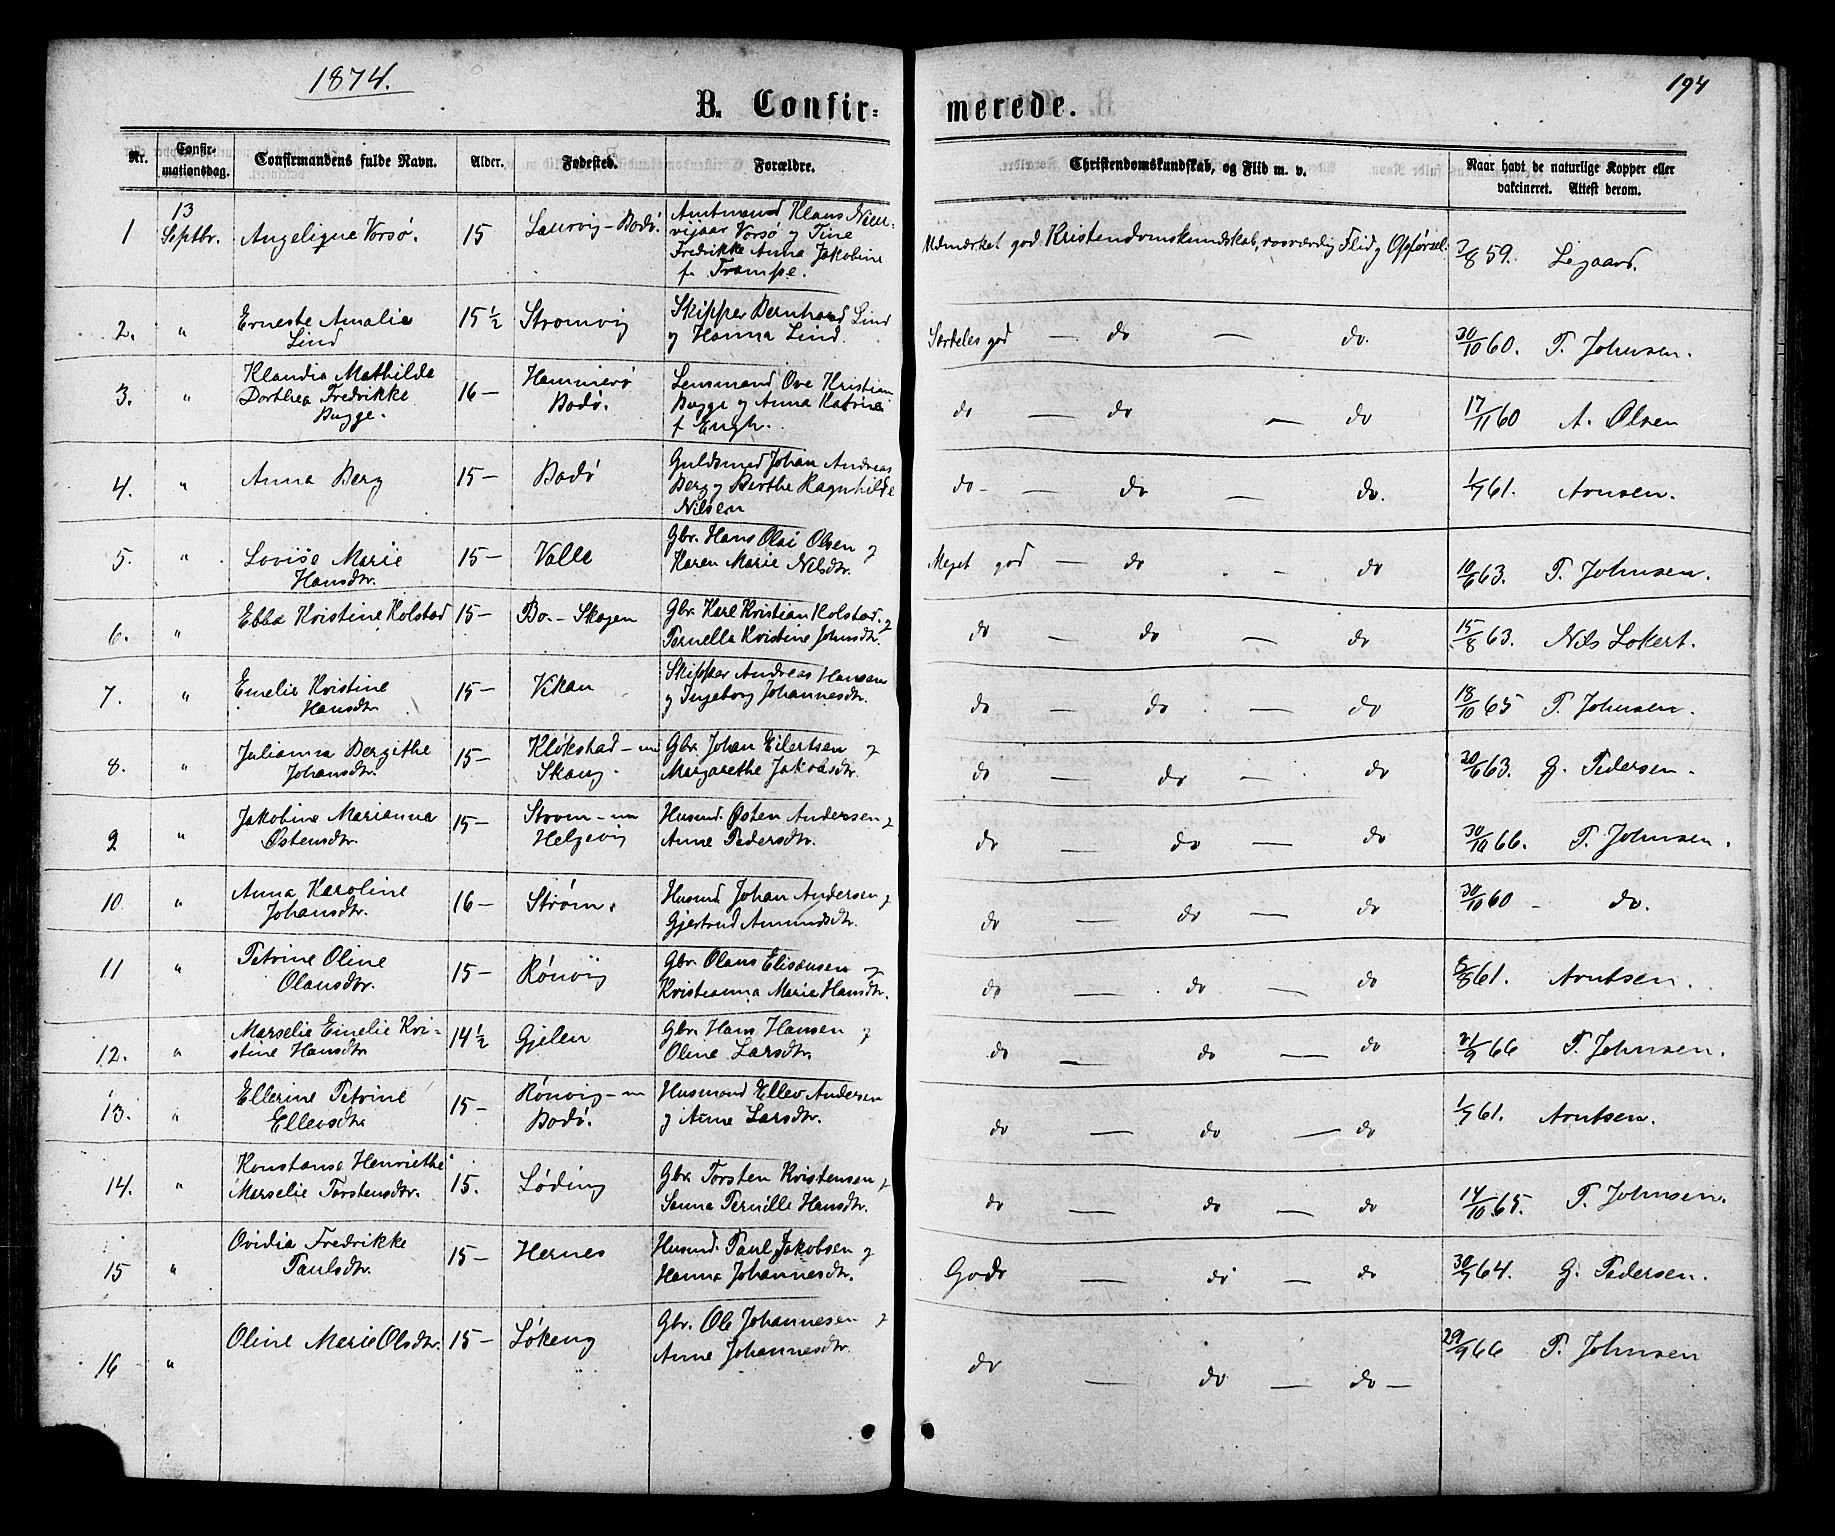 1874.
194
B. Confir-
merede.
Nr.
Confir-
mationsdag.
Confirmandens fulde Navn.
Alder.
Fødested.
Forældre.
Christendomskundskab, og Flid m. v.
Naar havt de naturlige Kopper eller
vakcineret. Attest derom.
1
13
Septbr.
Angelique Vorsø.
15
Laurvig - Bodø.
Amtmand Klaus
Vorsø og Tine
Fredrikke Anna Jakobine
f. Trampe.
Udmærket god Kristendomskundskab, rosværdig Flid og Opførsel.
7/8 59. Ligaard.
2. " Erneste Amalie
Lind
15 1/2 Stromvig
Skipper Bernhard Lind
og Hanna Lind.
Særdeles god — do — do.
30/10 60. T. Johnsen.
3. " Klandia Mathilda
Dorthea Fredrikke
Bugge.
16 — Hammerø
Bodø.
Lensmand Ove Kristian
Bugge og Anna Katrine
f. Engh.
do — do — do
17/11 60 A. Olsen
4. " Anna Berg
15 — Bodø
Guldsmed Johan Andreas
Berg og Berthe Ragnhilde
Nilsen
do - — do — do.
1/7 61. Arnsen.
5. " Lovise Marie
Hansdtr.
15 — Valle
Gbr. Hans Olai Olsen og
Karen Marie Nilsdtr.
Meget god — do . - do
10/6 63. T. Johnsen.
6. " Ebba Kristine Kolstad
15 — Bo. - Skagen
Gbr. Karl Kristian Kolstad. og
Pernella Kristine Johnsdtr.
do — do — do
15/8 63. Nils Lokert.
7. " Emelie Kristine
Hansdtr
15 — Vikan
Skipper Andreas Hansen
og Ingeborg Johannesdtr.
do — do — do
18/10 65 T. Johnsen.
8. " Julianna Bergithe
Johansdtr.
15 — Kløkstad - nu
Skaug.
Gbr. Johan Eilertsen og
Margarethe Jakobsdtr.
do — do — do
20/6 63. G. Pedersen.
9 " Jakobine Marianna
Østensdtr.
15 — Strom - nu
Helgevig
Husmd. Østen Andersen og
Anne Pedersdtr.
do — do — do
30/10 66. T. Johnsen.
10. " Anna Karoline
Johansdtr.
16 — Strøm.
Husmd Johan Andersen og
Gjertrud Amundsdtr.
do — do — do
30/10 60 - do.
11 " Petrine Oline
Olausdtr.
15 — Rønvig
Gbr. Olaus Elisæusen og
Kristianna Marie Hansdtr.
do — do — do
8/8 61. Arntsen.
12. " Marselie Emelie Kri-
stine Hansdtr
14 1/2 Gjelen
Gbr. Hans Hansen og
Oline Larsdtr.
do — do — do
21/9 66 T. Johnsen.
13. " Ellerine Petrine
Ellevsdtr
15 - Rønvig - nu
Bodø.
Husmand Ellev Andersen
og Anne Larsdtr.
do — do — do
1/7 61. Arntsen.
14. " Konstanse Henriethe
Marselie Torstensdtr.
15. Løding
Gbr. Torsten Kristensen og
Sanna Pernille Hansdtr.
do — do — do
14/10 65. T. Johnsen.
15 " Ovidia Fredrikke
Paulsdtr.
15 — Hernes
Husmd. Paul Jakobsen og
Hanna Johannesdtr.
Godt — do — do
30/7 64. G. Pedersen.
16 " Oline Marie Olsdtr.
15 — Løkeng
Gbr. Ole Johannesen og
Anne Johannesdtr.
do — do — do —
29/9 66 T. Johnsen